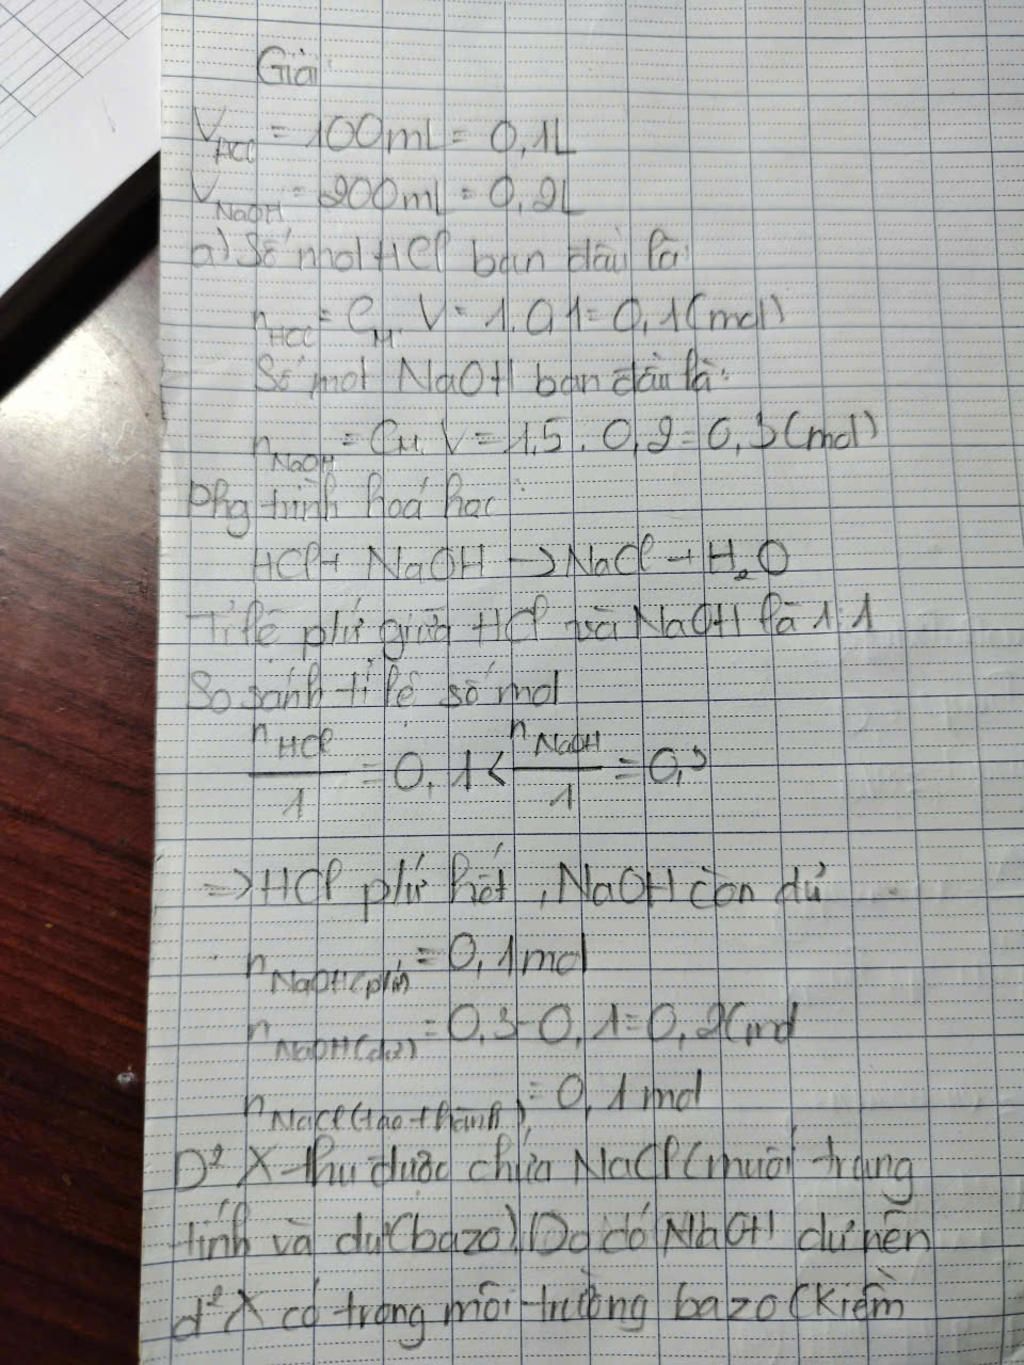 Giải:
V_HCl = 100mL = 0,1L
V_NaOH = 200mL = 0,2L
a) Số mol HCl ban đầu là
n_HCl = C_M. V = 1. 0,1 = 0,1(mol)
Số mol NaOH ban đầu là:
n_NaOH = C_M. V = 1,5. 0,2 = 0,3(mol)
Phg trình hoá học:
HCl + NaOH → NaCl + H₂O
Tỉ lệ phứ giữa HCl và NaOH là 1:1
So sánh tỉ lệ số mol
n_HCl/1 = 0,1 < n_NaOH/1 = 0,3
⇒ HCl phứ hết, NaOH còn dư
n_NaOH(phứ) = 0,1mol
n_NaOH(dư) = 0,3-0,1=0,2(mol
n_NaCl(tạo thành) = 0,1mol
D² X thu được chứa NaCl(muối trung
tính và dư(bazo).Do đó NaOH dư nên
d² X có trong môi trường bazo(kiềm